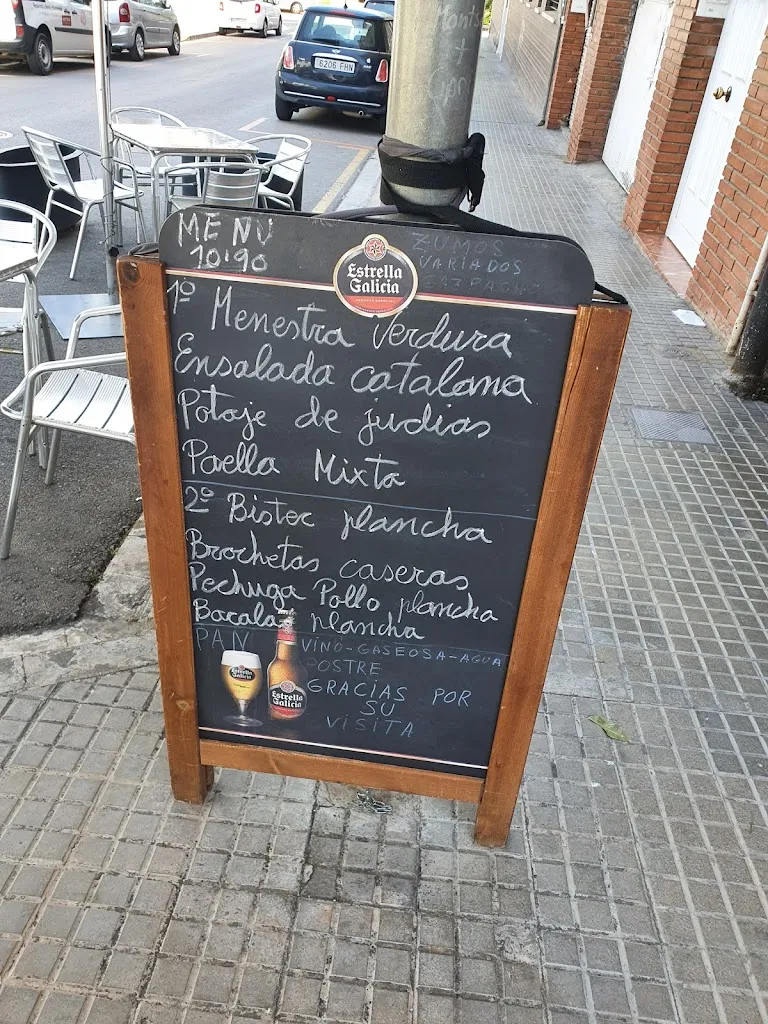 MENU
10'90
ZUMOS
VARIADOS
GAZPACHO
Estrella
Galicia
1º Menestra verdura
Ensalada catalana
Potaje de judias
Paella Mixta
2º Bistec plancha
Brochetas caseras
Pechuga Pollo plancha
Bacalao plancha
PAN VINO-GASEOSA-AGUA
POSTRE
GRACIAS POR
SU
VISITA
Estrella
Galicia
Estrella
Galicia
6206 FHN